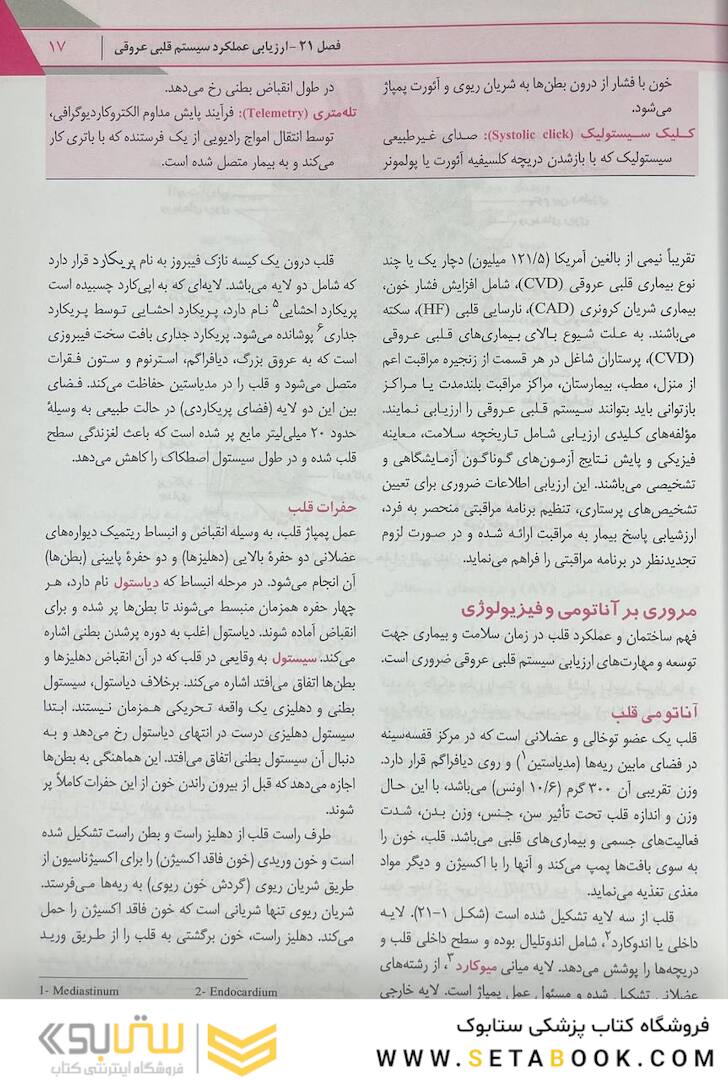 فصل ۲۱ - ارزیابی عملکرد سیستم قلبی عروقی
۱۷
خون با فشار از درون بطن‌ها به شریان ریوی و آئورت پمپاژ
می‌شود.
کلیک سیستولیک (Systolic click): صدای غیرطبیعی
سیستولیک که با بازشدن دریچه کلسیفیه آئورت یا پولمونر
در طول انقباض بطنی رخ می‌دهد.
تله‌متری (Telemetry): فرآیند پایش مداوم الکتروکاردیوگرافی،
توسط انتقال امواج رادیویی از یک فرستنده که با باتری کار
می‌کند و به بیمار متصل شده است.
تقریباً نیمی از بالغین آمریکا (۱۲۱/۵ میلیون) دچار یک یا چند
نوع بیماری قلبی عروقی (CVD)، شامل افزایش فشار خون،
بیماری شریان کرونری (CAD)، نارسایی قلبی (HF)، سکته
می‌باشند. به علت شیوع بالای بیماری‌های قلبی عروقی
(CVD)، پرستاران شاغل در هر قسمت از زنجیره مراقبت اعم
از منزل، مطب، بیمارستان، مراکز مراقبت بلندمدت یا مراکز
بازتوانی باید بتوانند سیستم قلبی عروقی را ارزیابی نمایند.
مؤلفه‌های کلیدی ارزیابی شامل تاریخچه سلامت، معاینه
فیزیکی و پایش نتایج آزمون‌های گوناگون آزمایشگاهی و
تشخیصی می‌باشند. این ارزیابی اطلاعات ضروری برای تعیین
تشخیص‌های پرستاری، تنظیم برنامه مراقبتی منحصر به فرد،
ارزشیابی پاسخ بیمار به مراقبت ارائه شده و در صورت لزوم
تجدیدنظر در برنامه مراقبتی را فراهم می‌نماید.
مروری بر آناتومی و فیزیولوژی
فهم ساختمان و عملکرد قلب در زمان سلامت و بیماری جهت
توسعه و مهارت‌های ارزیابی سیستم قلبی عروقی ضروری است.
آناتومی قلب
قلب یک عضو توخالی و عضلانی است که در مرکز قفسه‌سینه
در فضای مابین ریه‌ها (مدیاستین۱) و روی دیافراگم قرار دارد.
وزن تقریبی آن ۳۰۰ گرم (۱۰/۶ اونس) می‌باشد، با این حال
وزن و اندازه قلب تحت تأثیر سن، جنس، وزن بدن، شدت
فعالیت‌های جسمی و بیماری‌های قلبی می‌باشد. قلب، خون را
به سوی بافت‌ها پمپ می‌کند و آنها را با اکسیژن و دیگر مواد
مغذی تغذیه می‌نماید.
قلب از سه لایه تشکیل شده است (شکل ۱-۲۱). لایه
داخلی یا اندوکارد۲، شامل اندوتلیال بوده و سطح داخلی قلب و
دریچه‌ها را پوشش می‌دهد. لایه میانی میوکارد۳، از رشته‌های
عضلانی تشکیل شده و مسئول عمل پمپاژ است. لایه خارجی
قلب درون یک کیسه نازک فیبروز به نام پریکارد قرار دارد
که شامل دو لایه می‌باشد. لایه‌ای که به اپی‌کارد چسبیده است
پریکارد احشایی۵ نام دارد، پریکارد احشایی توسط پریکارد
جداری۶ پوشانده می‌شود. پریکارد جداری بافت سخت فیبروزی
است که به عروق بزرگ، دیافراگم، استرنوم و ستون فقرات
متصل می‌شود و قلب را در مدیاستین حفاظت می‌کند. فضای
بین این دو لایه (فضای پریکاردی) در حالت طبیعی به وسیلهٔ
حدود ۲۰ میلی‌لیتر مایع پر شده است که باعث لغزندگی سطح
قلب شده و در طول سیستول اصطکاک را کاهش می‌دهد.
حفرات قلب
عمل پمپاژ قلب، به وسیله انقباض و انبساط ریتمیک دیواره‌های
عضلانی دو حفرهٔ بالایی (دهلیزها) و دو حفرهٔ پایینی (بطن‌ها)
آن انجام می‌شود. در مرحله انبساط که دیاستول نام دارد، هر
چهار حفره همزمان منبسط می‌شوند تا بطن‌ها پر شده و برای
انقباض آماده شوند. دیاستول اغلب به دوره پرشدن بطنی اشاره
می‌کند. سیستول به وقایعی در قلب که در آن انقباض دهلیزها و
بطن‌ها اتفاق می‌افتد اشاره می‌کند. برخلاف دیاستول، سیستول
بطنی و دهلیزی یک واقعه تحریکی همزمان نیستند. ابتدا
سیستول دهلیزی درست در انتهای دیاستول رخ می‌دهد و به
دنبال آن سیستول بطنی اتفاق می‌افتد. این هماهنگی به بطن‌ها
اجازه می‌دهد که قبل از بیرون راندن خون از این حفرات کاملاً پر
شوند.
طرف راست قلب از دهلیز راست و بطن راست تشکیل شده
است و خون وریدی (خون فاقد اکسیژن) را برای اکسیژناسیون از
طریق شریان ریوی (گردش خون ریوی) به ریه‌ها می‌فرستد.
شریان ریوی تنها شریانی است که خون فاقد اکسیژن را حمل
می‌کند. دهلیز راست، خون برگشتی به قلب را از طریق ورید
1- Mediastinum
2- Endocardium
فروشگاه کتاب پزشکی ستابوک
WWW.SETABOOK.COM
ستابوک
فروشگاه اینترنتی کتاب